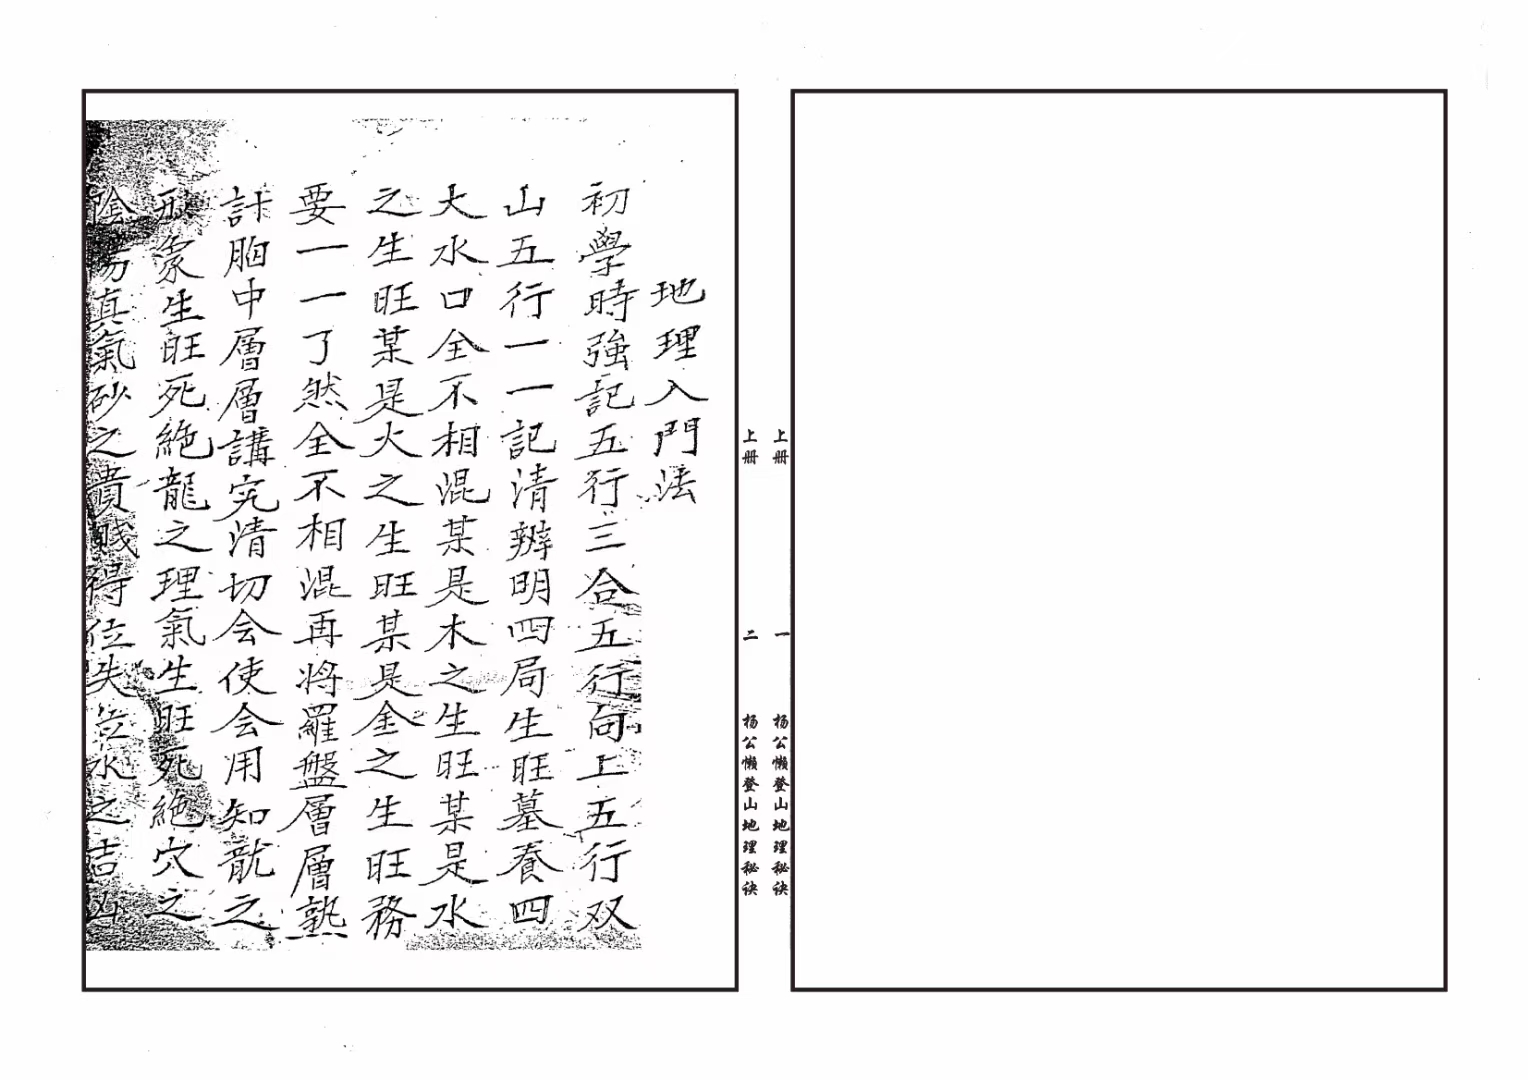 上册 一 杨公懒登山地理秘诀
上册 二 杨公懒登山地理秘诀
地理入門法
初學時強記五行三合五行向上五行双
山五行一一記清辦明四局生旺墓養四
大水口全不相混某是木之生旺某是水
之生旺某是火之生旺某是金之生旺務
要一一了然全不相混再將羅盤層層熟
計胸中層層講究清切会使会用知龍之
形象生旺死絶龍之理氣生旺死絶穴之
陰陽真氣砂之貴賤得位失位水之吉凶